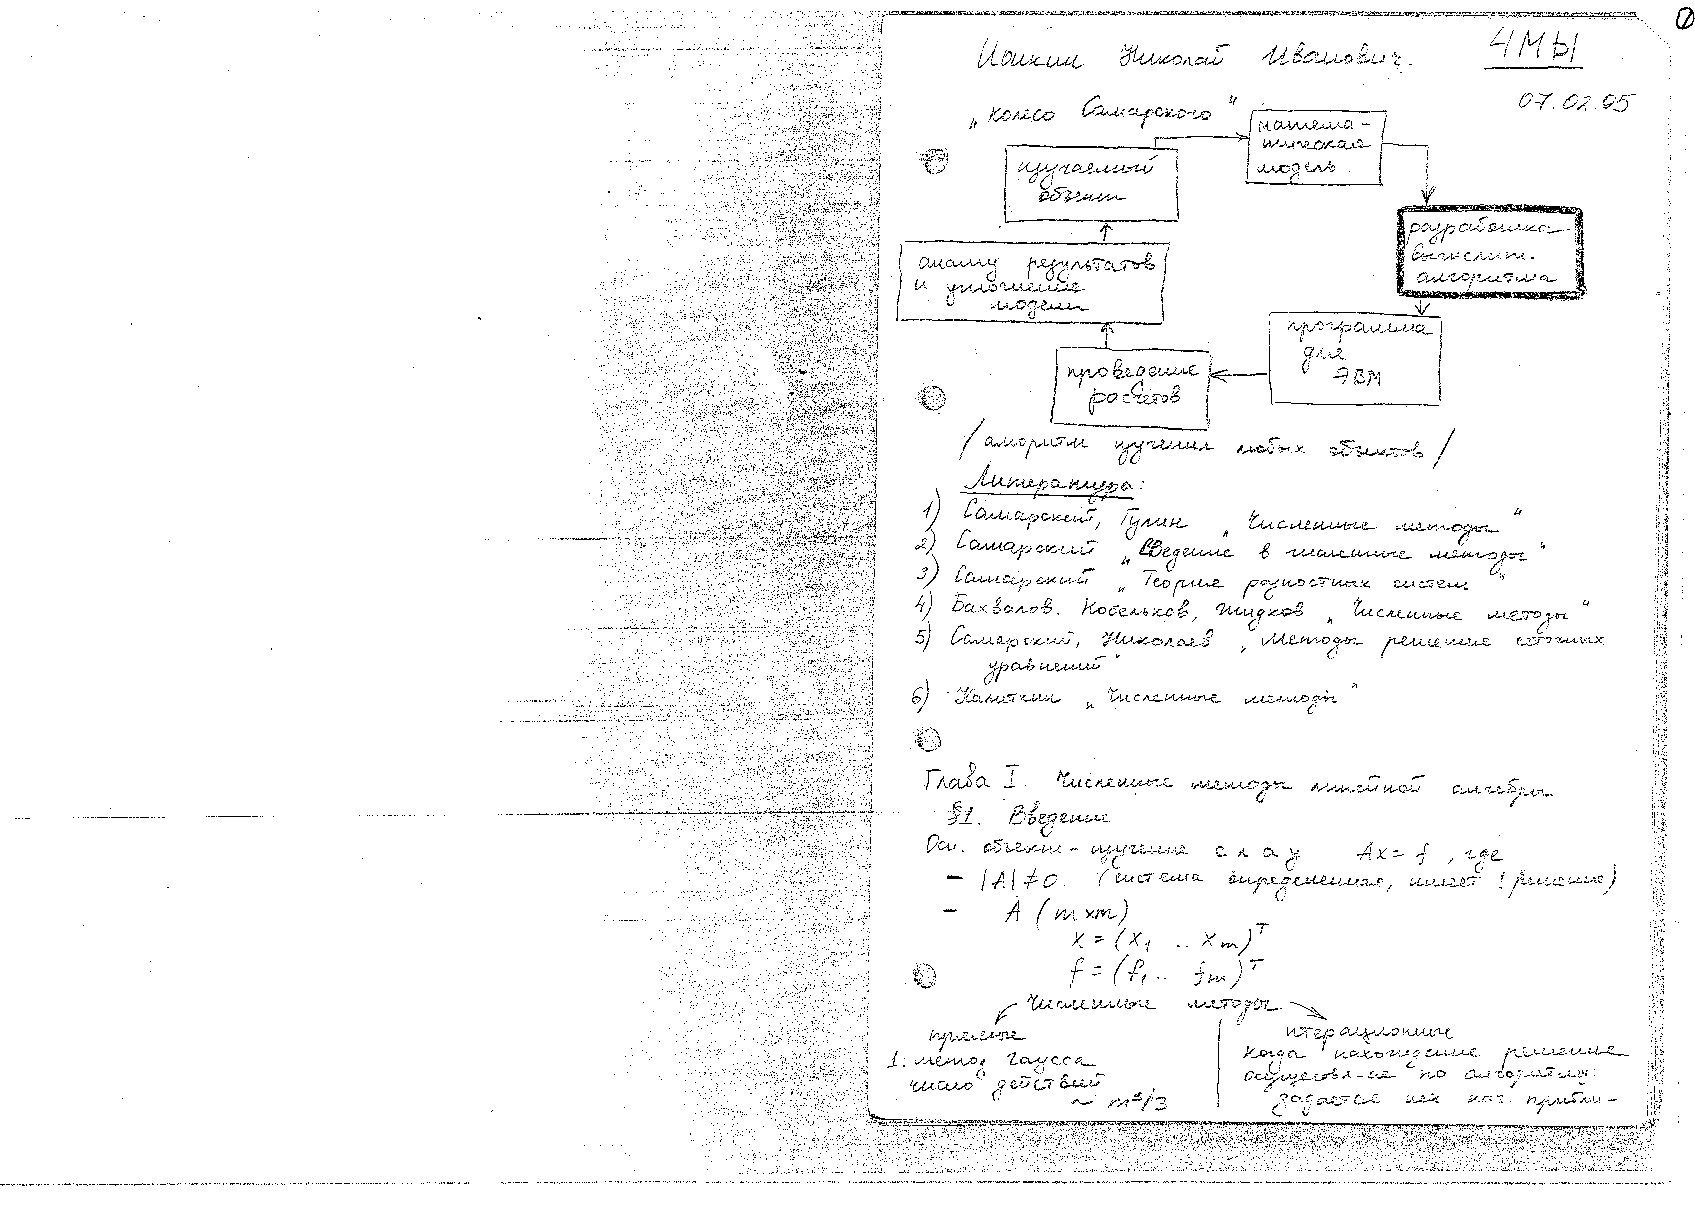 Ионкин Николай Иванович.
ЧМЫ
07.02.05
„колесо Самарского"
изучаемый
объект
матема-
тическая
модель
разработка
вычислит.
алгоритма
программа
для
ЭВМ
проведение
расчетов
анализ результатов
и уточнение
модели
/ алгоритм изучения любых объектов /
Литература:
1) Самарский, Гулин „Численные методы"
2) Самарский „Введение в численные методы"
3) Самарский „Теория разностных систем"
4) Бахвалов. Кобельков, Жидков „Численные методы"
5) Самарский, Николаев „Методы решение сеточных
уравнений"
6) Калиткин „Численные методы"
Глава I. Численные методы линейной алгебры
§1. Введение
Осн. объект - изучение с л а у Ax = f, где
- |A| ≠ 0. (система определенная, имеет ! решение)
- A (m×m)
x = (x₁ .. xₘ)ᵀ
f = (f₁ .. fₘ)ᵀ
Численные методы
прямые
1. метод Гаусса
число действий
~ m³/3
итерационные
когда нахождение решение
осуществл-ся по алгоритму:
задается нек нач. прибли-